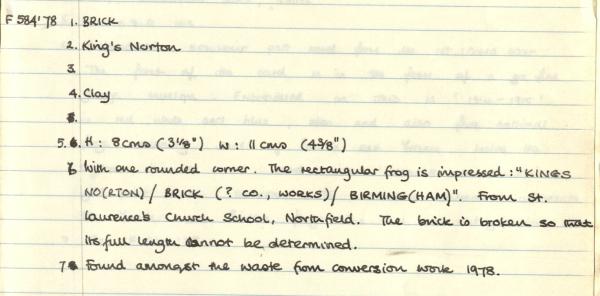 F 584'78 1. BRICK
2. King's Norton
3
4. Clay
5. 6. H: 8cms (3 1/8") W: 11 cms (4 3/8")
6 With one rounded corner. The rectangular frog is impressed: "KINGS
NO(RTON)/ BRICK (? CO., WORKS)/ BIRMING(HAM)". From St.
Laurence's Church School, Northfield. The brick is broken so that
its full length cannot be determined.
7 Found amongst the waste from conversion work 1978.